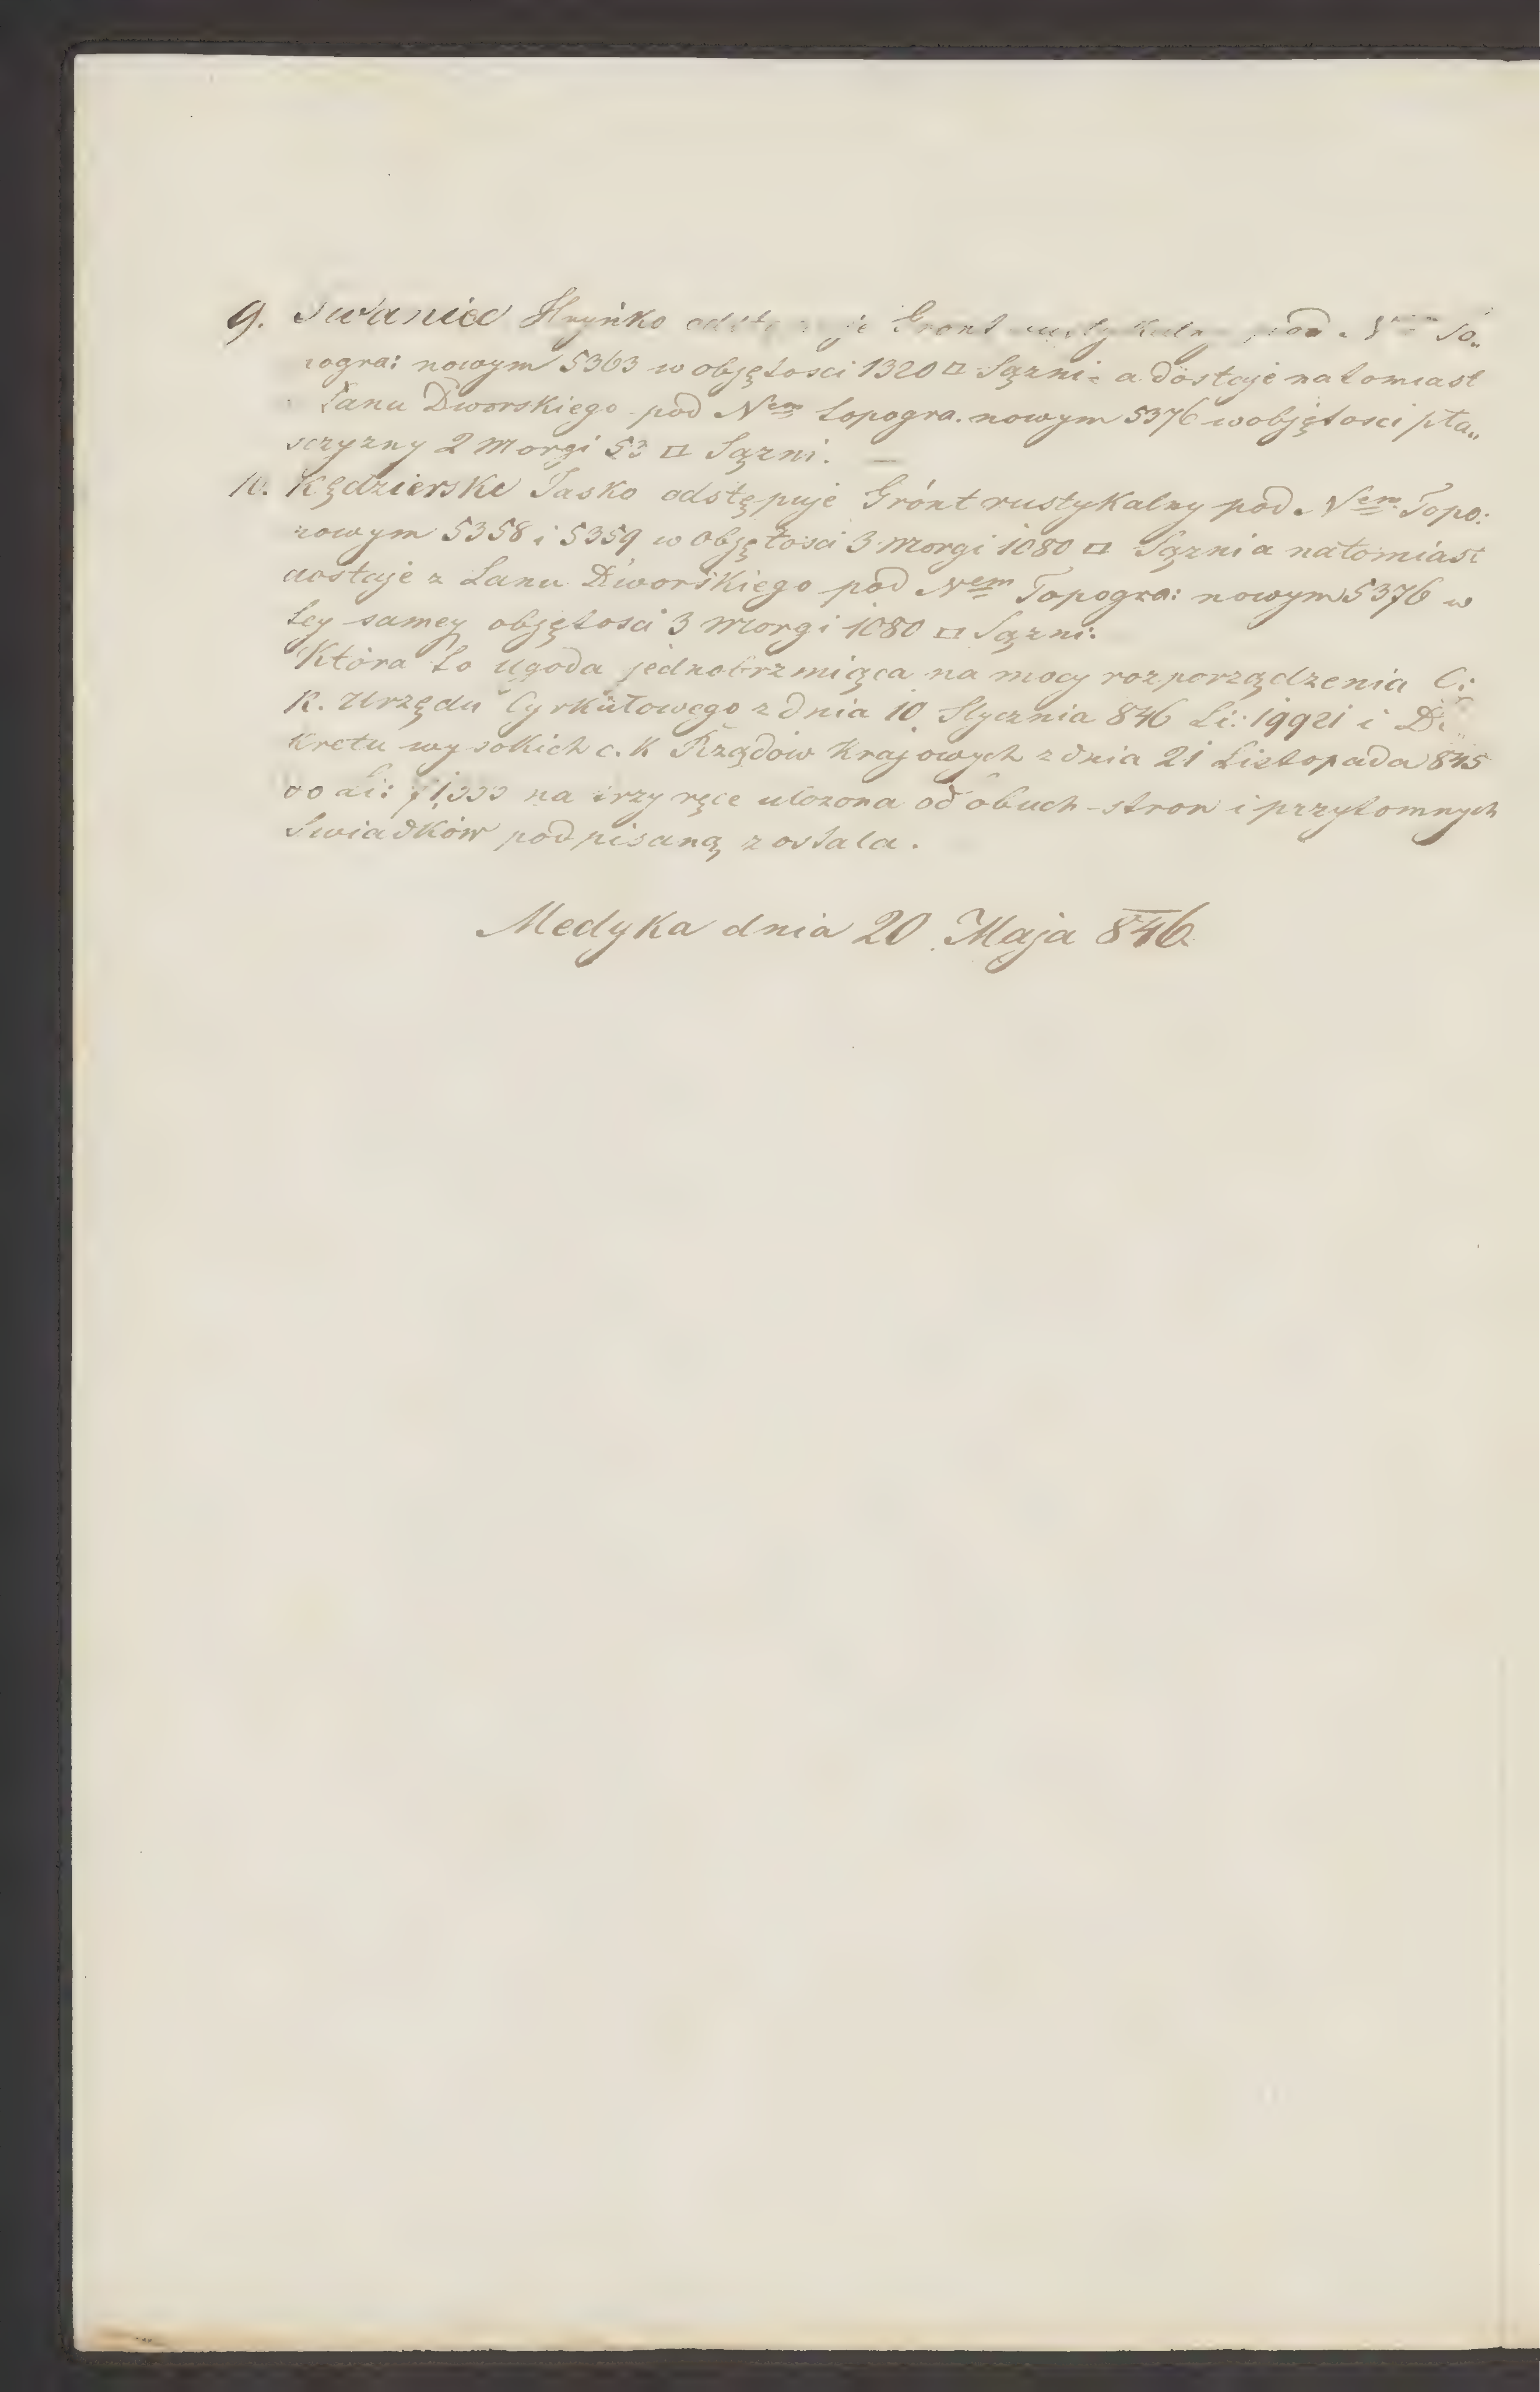 9. Iwaniec Hryńko odstępuje Gront rustykalny pod Nem To„
pogra: nowym 5363 w objętosci 1320 □ Sążni a dostaje natomiast
Łanu Dworskiego pod Nem topogra. nowym 5376 w objętosci pła„
sczyzny 2 Morgi 53 □ Sążni. —
10. Kędzierski Jasko odstępuje Grónt rustykalny pod Nem Topo:
nowym 5358 i 5359 w Objętosci 3 Morgi 1080 □ Sążni a natomiast
dostaje z Lanu Dworskiego pod Nem Topogra: nowym 5376 w
tey samey objętosci 3 Morgi 1080 □ Sążni:
Która to ugoda jednobrzmiąca na mocy rozporządzenia C:
K. Urzędu Cyrkułowego z dnia 10 Stycznia 846 Li: 19921 i De„
kretu wysokich c. K Rządów Krajowych z dnia 21 Listopada 845
do Li: na trzy ręce ulozona od obuch stron i przytomnych
Swiadków podpisaną zostala.
Medyka dnia 20 Maja 846.